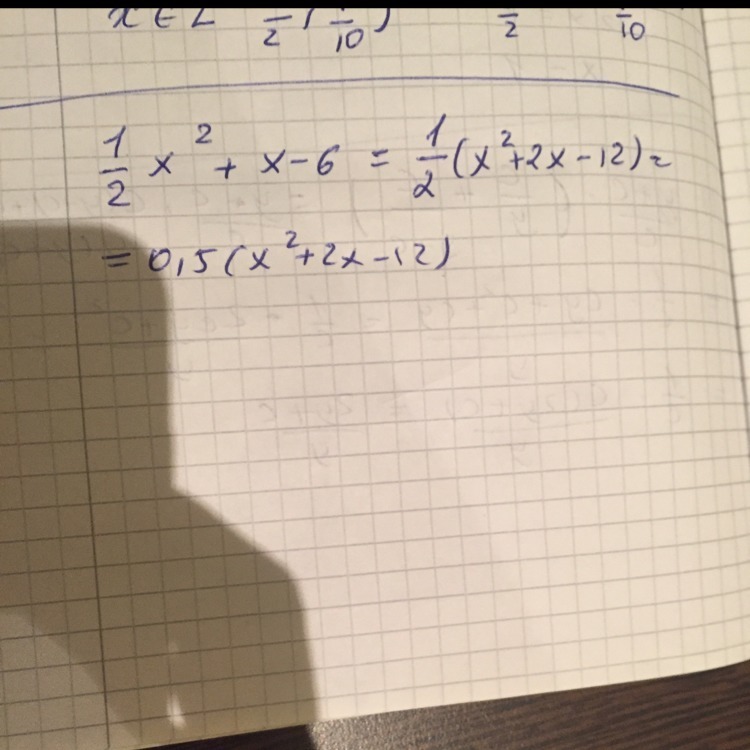 x ∈ [ /2 ; 1/10 ) /2 1/10
1/2 x² + x - 6 = 1/2 (x² + 2x - 12) =
= 0,5 (x² + 2x - 12)